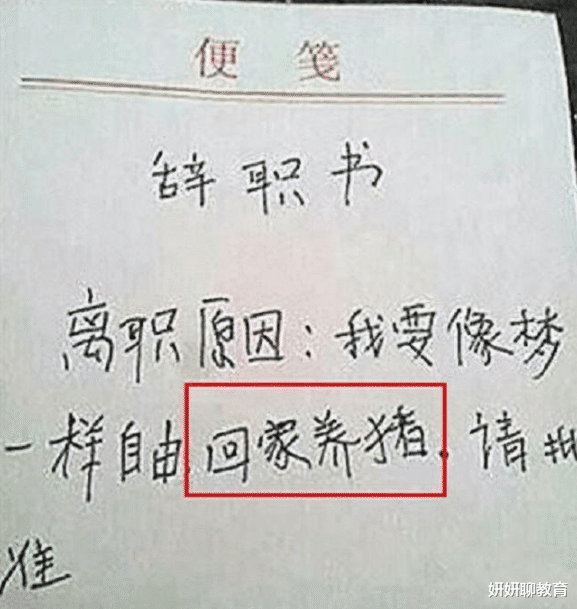 便 笺
辞职书
离职原因：我要像梦
一样自由，回家养猪．请批
准
妍妍聊教育